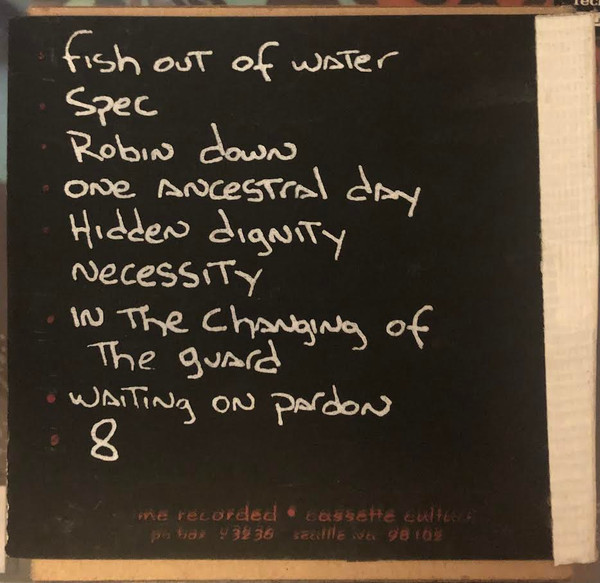 fish out of water
Spec
Robin down
one ancestral day
Hidden dignity
Necessity
IN The Changing of
The guard
waiting on pardon
8
me recorded • cassette cultu
po box 43236 seattle wa 98102